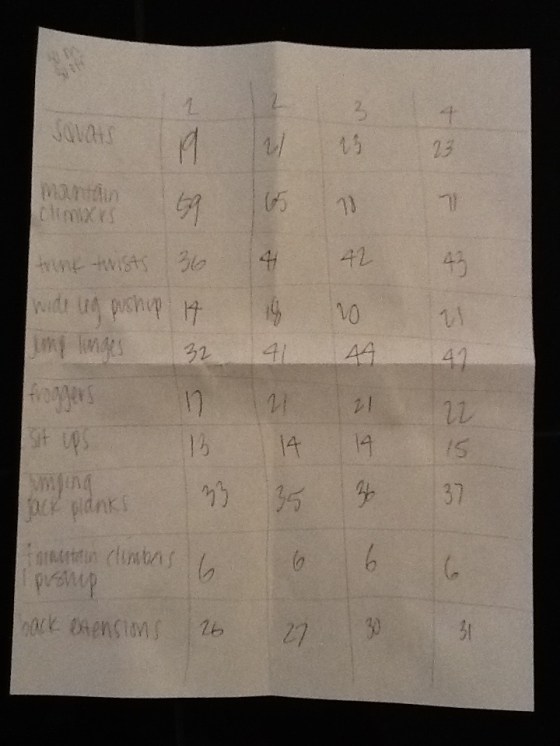 2 2 3 4
squats 19 21 23 23
mountain
climbers 59 65 71
trunk twists 36 41 42 43
wide leg pushup 14 18 20 21
jump lunges 32 41 44 47
froggers 17 21 21 22
sit ups 13 14 14 15
jumping
jack planks 33 35 36 37
mountain climbers
1 pushup 6 6 6 6
back extensions 26 27 30 31